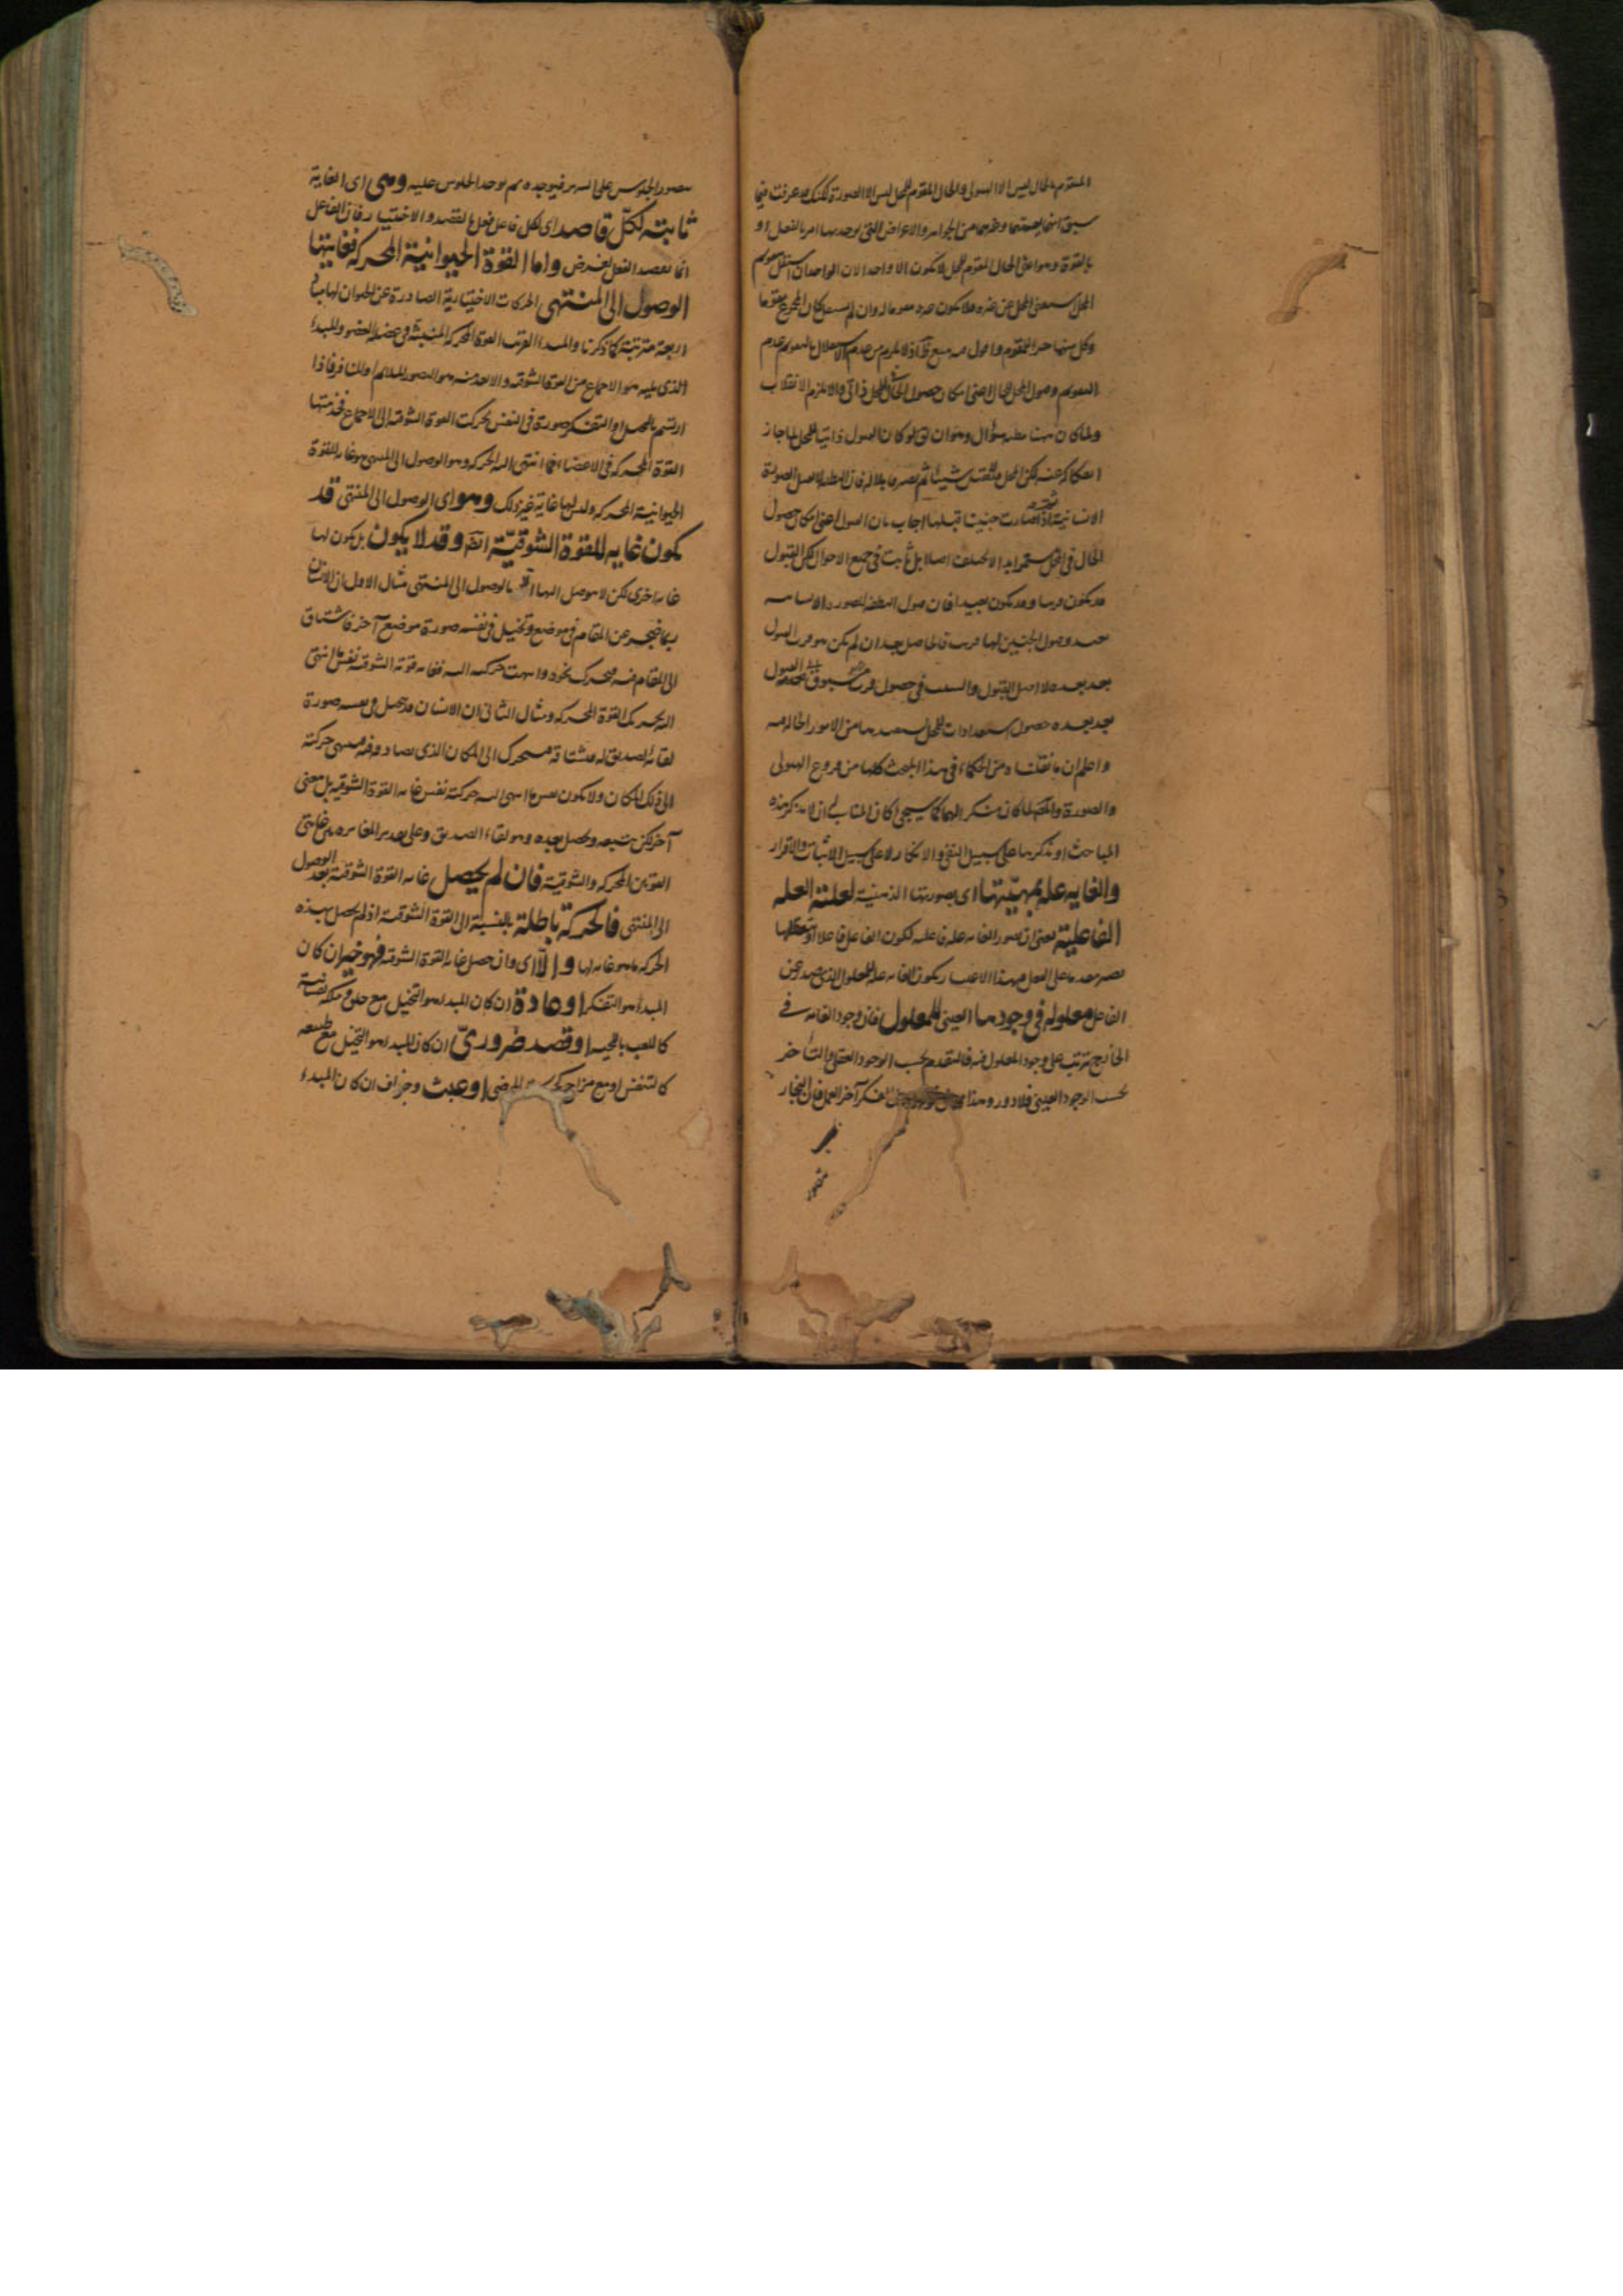 المتقوم بالحال ليس الا الهيولى والحال المقوم للمحل ليس الا الصورة ولكنك عرفت فيما
سبق من الجواهر والاعراض التي يوجد بها امر بالفعل او
بالقوة وهو اعنى الحال المقوم للمحل لا يكون الا واحدا لان الواحد ان استقل بتقويم
المحل استغنى المحل عن غيره فلا يكون غيره مقوما له وان لم يستقل كان المجموع مقوما
وكل منهما جزء المقوم
التقويم وقبول المحل للحال اعنى امكان حصول الحال للمحل ذاتي والا لزم الانقلاب
ولما كان هنا مظنة سؤال وهو ان يق لو كان القبول ذاتيا للمحل لما جاز
انفكاكه عنه لكن المحل شيئا ثم يصير قابلا له فان النطفة لا تقبل الصورة
الانسانية ثم اذا صارت جنينا قبلتها اجاب بان القبول اعنى امكان حصول
الحال في المحل مستمر ابدا لا يختلف اصلا بل ثابت في جميع الاحوال لكن القبول
قد يكون قريبا وقد يكون بعيدا فان قبول النطفة للصورة الانسانية
بعيد وقبول الجنين لها قريب فالحاصل بعد ان لم يكن هو قرب القبول
بعد بعده لا اصل القبول والسبب في حصول قرب القبول
بعد بعده حصول استعدادات للمحل من الامور الحالة فيه
واعلم ان ما نقلناه من الحكماء في هذا المبحث كلها من فروع الهيولى
والصورة والمص لما كان منكرا لهما كما سيجئ كان المناسب له ان لا يذكر هذه
المباحث او يذكرها على سبيل النفي والانكار لا على سبيل الاثبات والاقرار
والغاية علة بمهيّتها اى بصورتها الذهنية لعلّية العلة
الفاعلية يعنى ان تصور الغاية علة فاعلية لكون الفاعل فاعلا
على الفعل فبهذا الاعتبار يكون الغاية علة للمعلول الذي صدر عن
الفاعل معلولة في وجودها العيني للمعلول فان وجود الغاية في
الخارج يترتب على وجود المعلول فيه فالتقدم بحسب الوجود العقلي والتأخر
بحسب الوجود العيني فلا دور وهذا الفكر آخر العمل فان النجار
يتصور الجلوس على السرير فيوجده ثم يوجد الجلوس عليه وهي اى الغاية
ثابتة لكلّ قاصد اى لكل فاعل فعل بالقصد والاختيار فان الفاعل
انما يقصد الفعل لغرض واما القوة الحيوانية المحركة فغايتها
الوصول الى المنتهى الحركات الاختيارية الصادرة عن الحيوان لها مباد
اربعة مترتبة كما ذكرنا والمبدأ القريب القوة المحركة المنبثة في عضلة العضو والمبدأ
الذي يليه هو الاجماع من القوة الشوقية والابعد منه هو التصور الملائم او المنافر فاذا
ارتسم بالتخيل او التفكر صورة في النفس تحركت القوة الشوقية الى الاجماع فخدمتها
القوة المحركة في الاعضاء فما انتهى اليه الحركة وهو الوصول الى المنتهى هو غاية للقوة
الحيوانية المحركة وليس لها غاية غير ذلك وهو اى الوصول الى المنتهى قد
يكون غاية للقوة الشوقيّة ايضا وقد لا يكون بل يكون لها
غاية اخرى لكن لا يتوصل اليها الا بالوصول الى المنتهى مثال الاول ان الانسان
ربما ضجر عن المقام في موضع وتخيل في نفسه صورة موضع آخر فاشتاق
الى المقام فيه فتحرك نحوه وانتهت حركته اليه فغاية قوته الشوقية نفس ما انتهى
اليه تحريك القوة المحركة ومثال الثاني ان الانسان قد يتخيل في نفسه صورة
لقائه لصديق له فيشتاقه فيتحرك الى المكان الذي يصادفه فيه فينتهى حركته
الى ذلك المكان ولا يكون نفس ما انتهى اليه حركته نفس غاية القوة الشوقية بل معنى
آخر لكن يتبعه ويحصل بعده وهو لقاء الصديق وعلى تقدير المغايرة بين غايتي
القوتين المحركة والشوقية فان لم يحصل غاية القوة الشوقية بعد الوصول
الى المنتهى فالحركة باطلة بالنسبة الى القوة الشوقية اذ لم يحصل بهذه
الحركة ما هو غاية لها والّا اى وان حصل غاية القوة الشوقية فهو خير ان كان
المبدأ هو التفكر او عادة ان كان المبدأ هو التخيل مع خلق وملكة نفسانية
كاللعب باللحية او قصد ضروريّ ان كان المبدأ هو التخيل مع طبيعة
كالتنفس او مع مزاج كحركة المرضى او عبث وجزاف ان كان المبدء